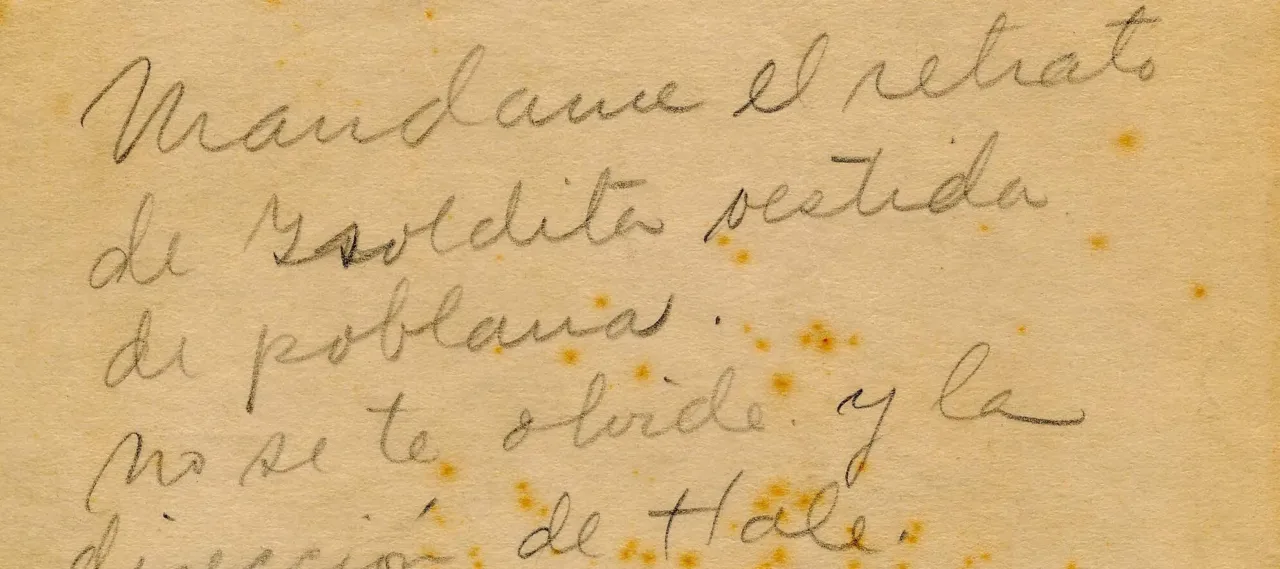 Mandame el retrato
de Isoldita vestida
de poblana.
no se te olvide. y la
dirección de Hale.